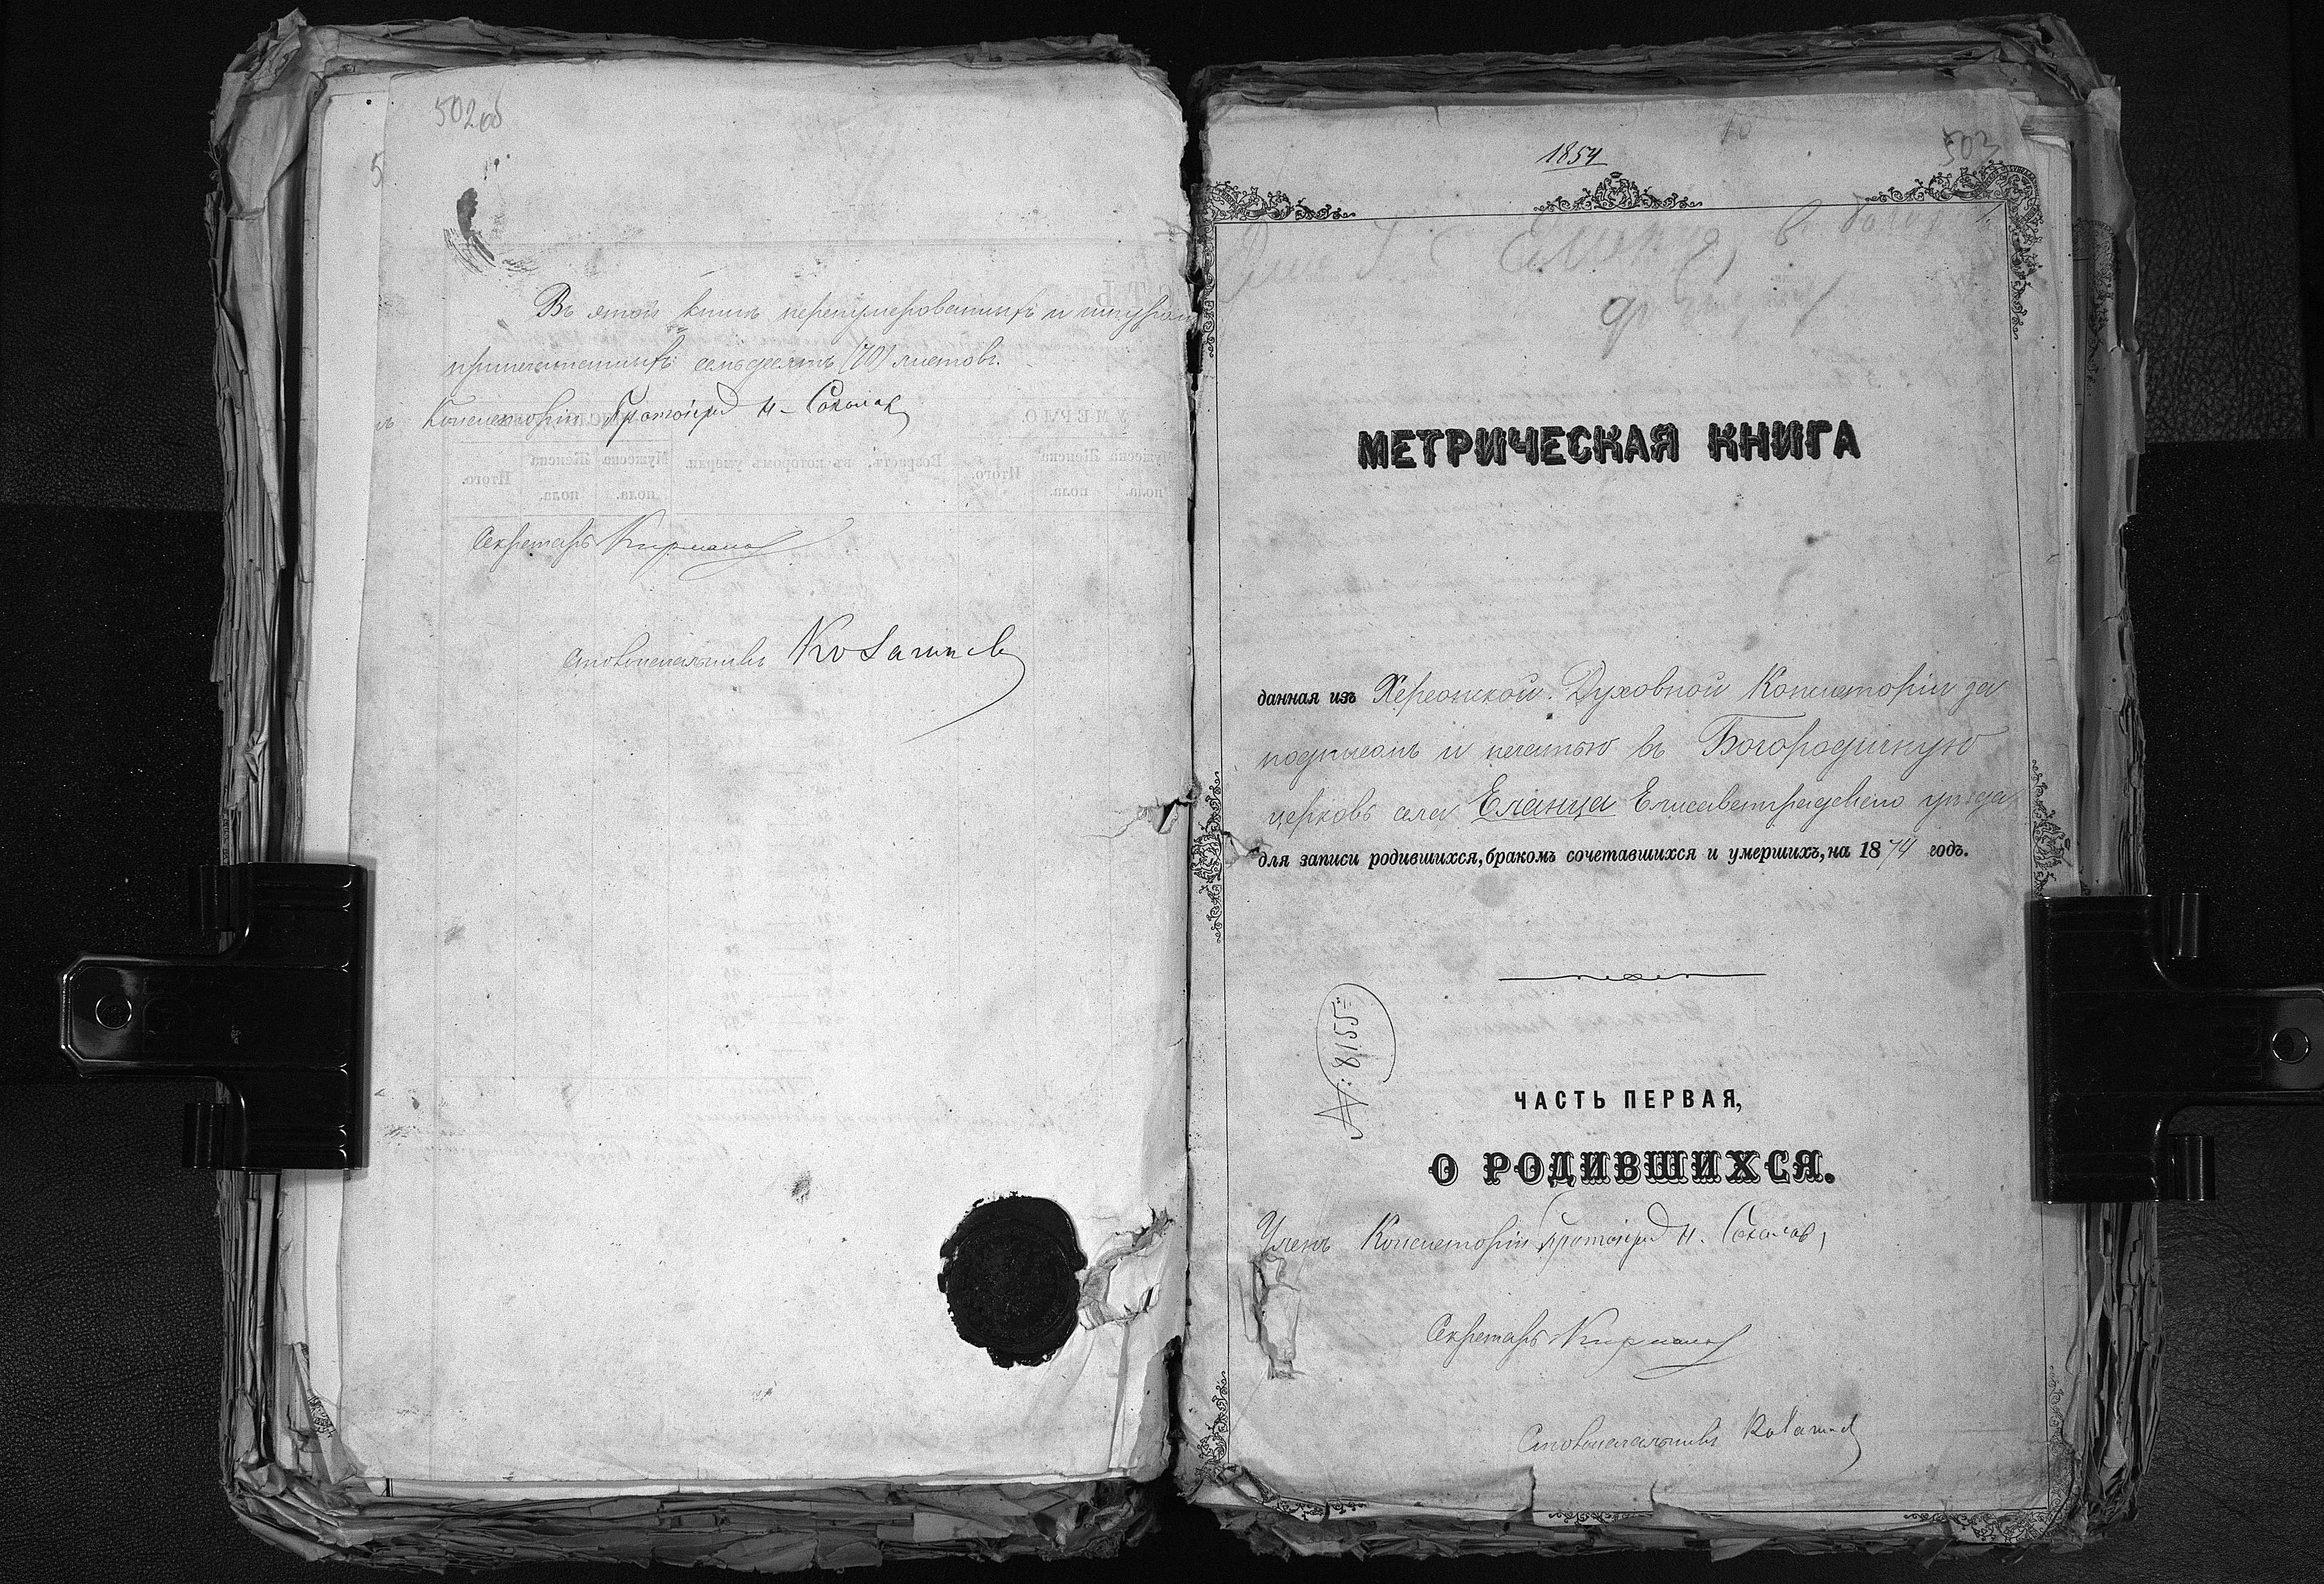 502 об
Въ этой книгѣ перенумерованныхъ и шнуром
припечатанныхъ семьдесятъ (70) листовъ.
ъ Консисторіи Протоіерей Н. Соколов
Секретарь
Столоначальникъ
503
1854
МЕТРИЧЕСКАЯ КНИГА
данная изъ Херсонской Духовной Консисторіи за
подписомъ и печатью въ Богородичную
церковь села Еланца Елисаветградскаго уѣзда
для записи родившихся, бракомъ сочетавшихся и умершихъ, на 1874 годъ.
№: 8155
ЧАСТЬ ПЕРВАЯ,
О РОДИВШИХСЯ.
Членъ Консисторіи Протоіерей Н. Соколов,
Секретарь
Столоначальникъ